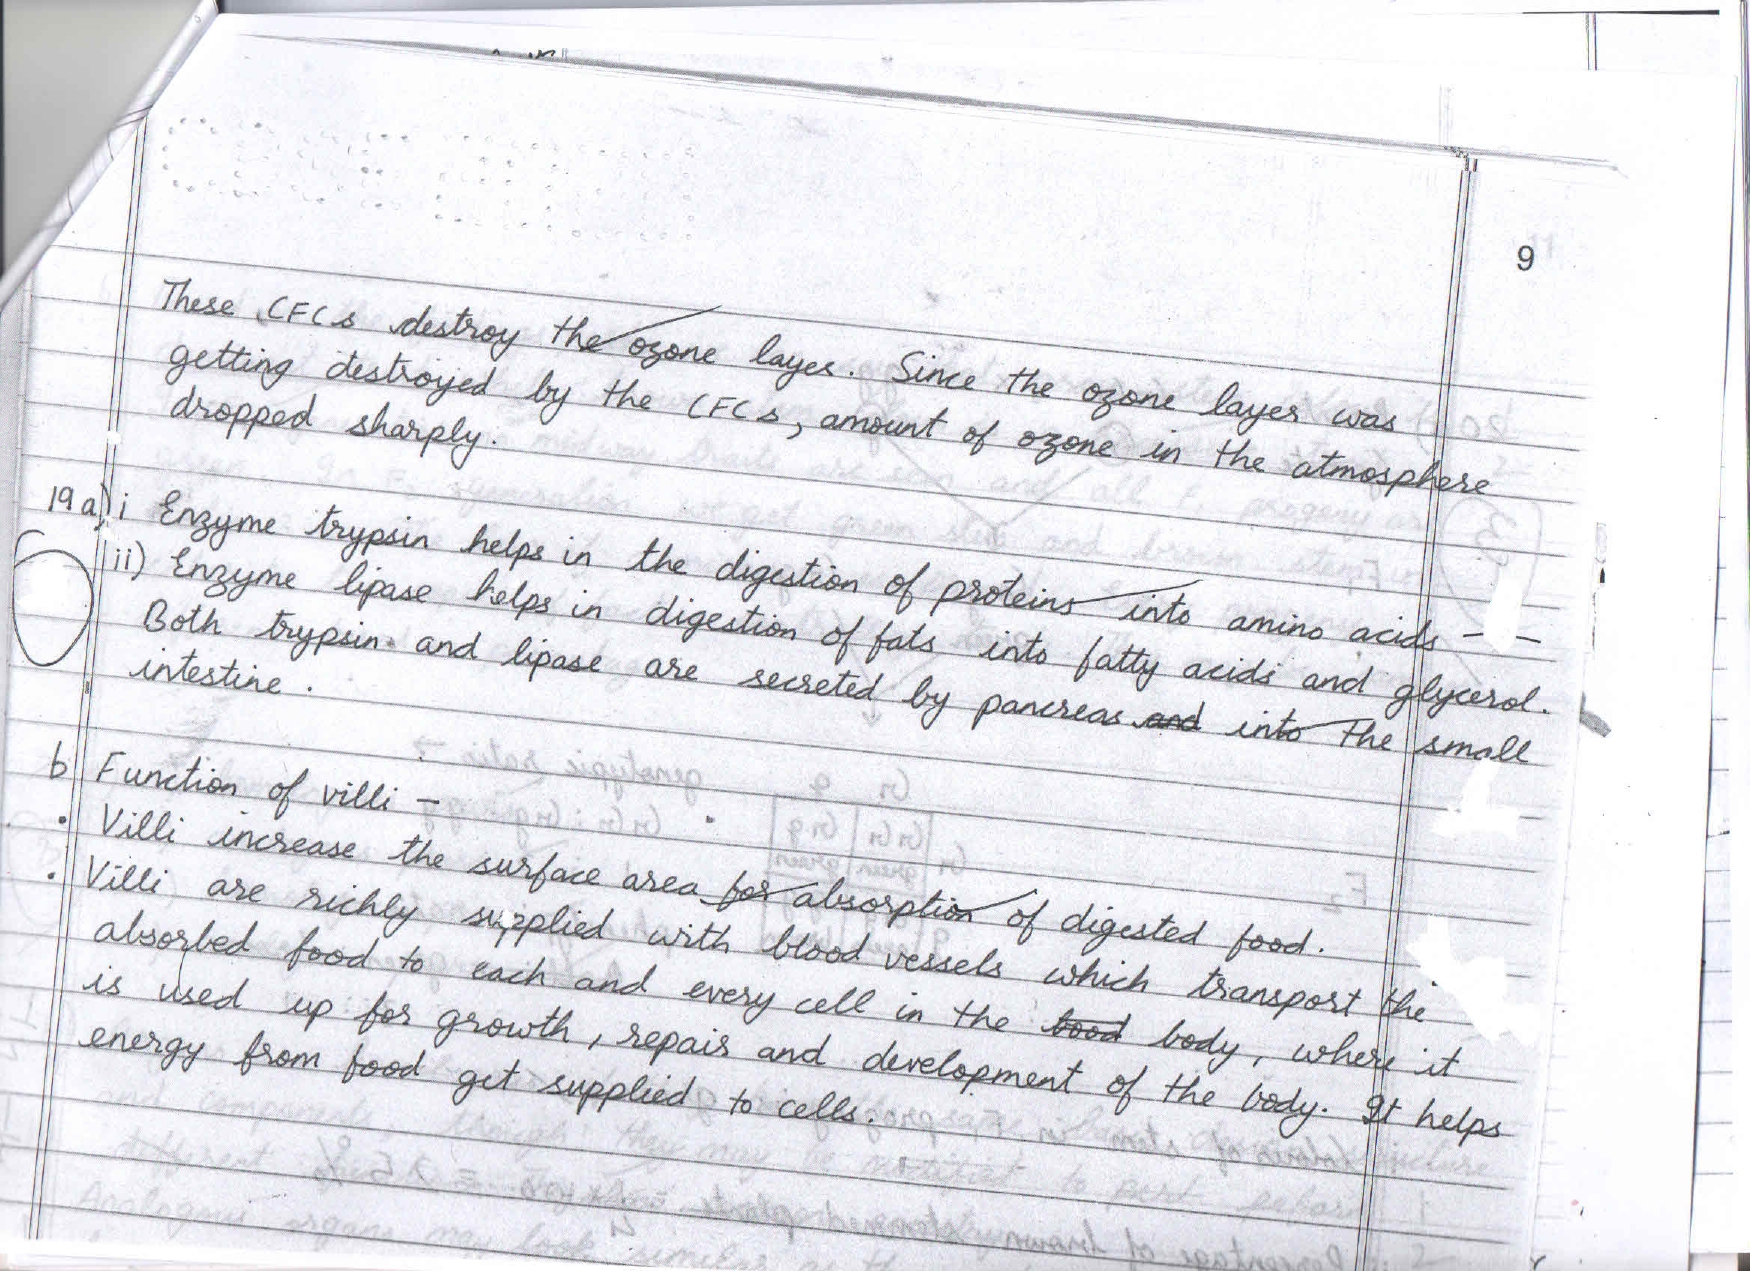 9
These CFCs destroy the ozone layer. Since the ozone layer was
getting destroyed by the CFCs, amount of ozone in the atmosphere
dropped sharply.
19 a) i Enzyme trypsin helps in the digestion of proteins into amino acids -
ii) Enzyme lipase helps in digestion of fats into fatty acids and glycerol.
Both trypsin and lipase are secreted by pancreas and into the small
intestine.
b Function of villi -
• Villi increase the surface area for absorption of digested food.
• Villi are richly supplied with blood vessels which transport the
absorbed food to each and every cell in the food body, where it
is used up for growth, repair and development of the body. It helps
energy from food get supplied to cells.